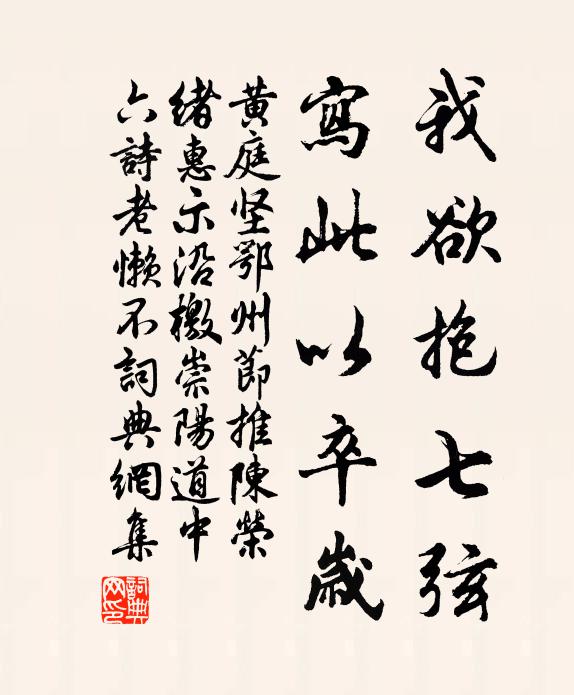 我欲抱七弦
寫此以卒歲
黃庭坚鄂州節推陳榮
緒惠示沿檄崇陽道中
六詩老懶不詞典網集
詞典网印